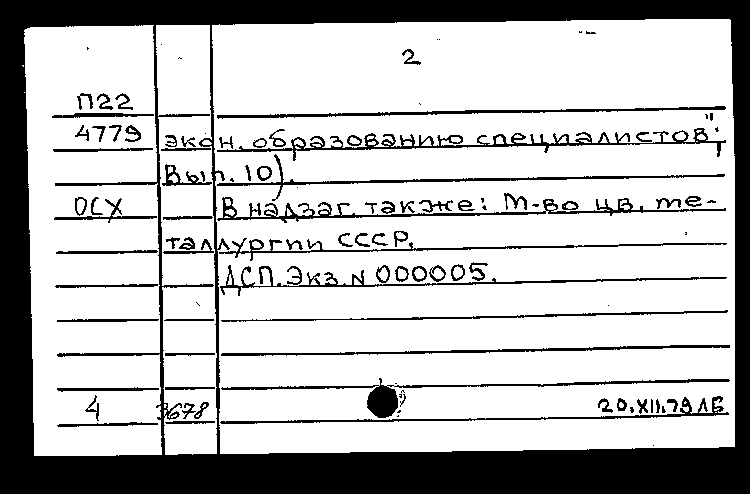 2
П22
4779 экон. образованию специалистов";
Вып. 10).
ОСХ В надзаг. также: М-во цв. ме-
таллургии СССР.
ДСП. Экз. N 000005.
4 3678 20.XII.79 ЛБ